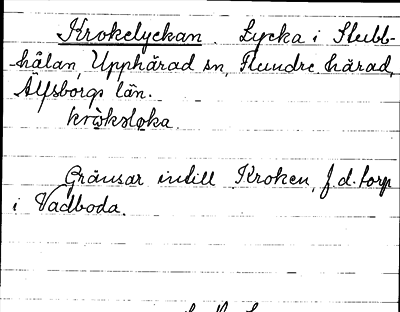 Krokelyckan. Lycka i Stubb-
hålan, Upphärad sn, Flundre härad,
Älfsborgs län.
Gränsar intill Kroken, f.d. torp
i Vadboda.